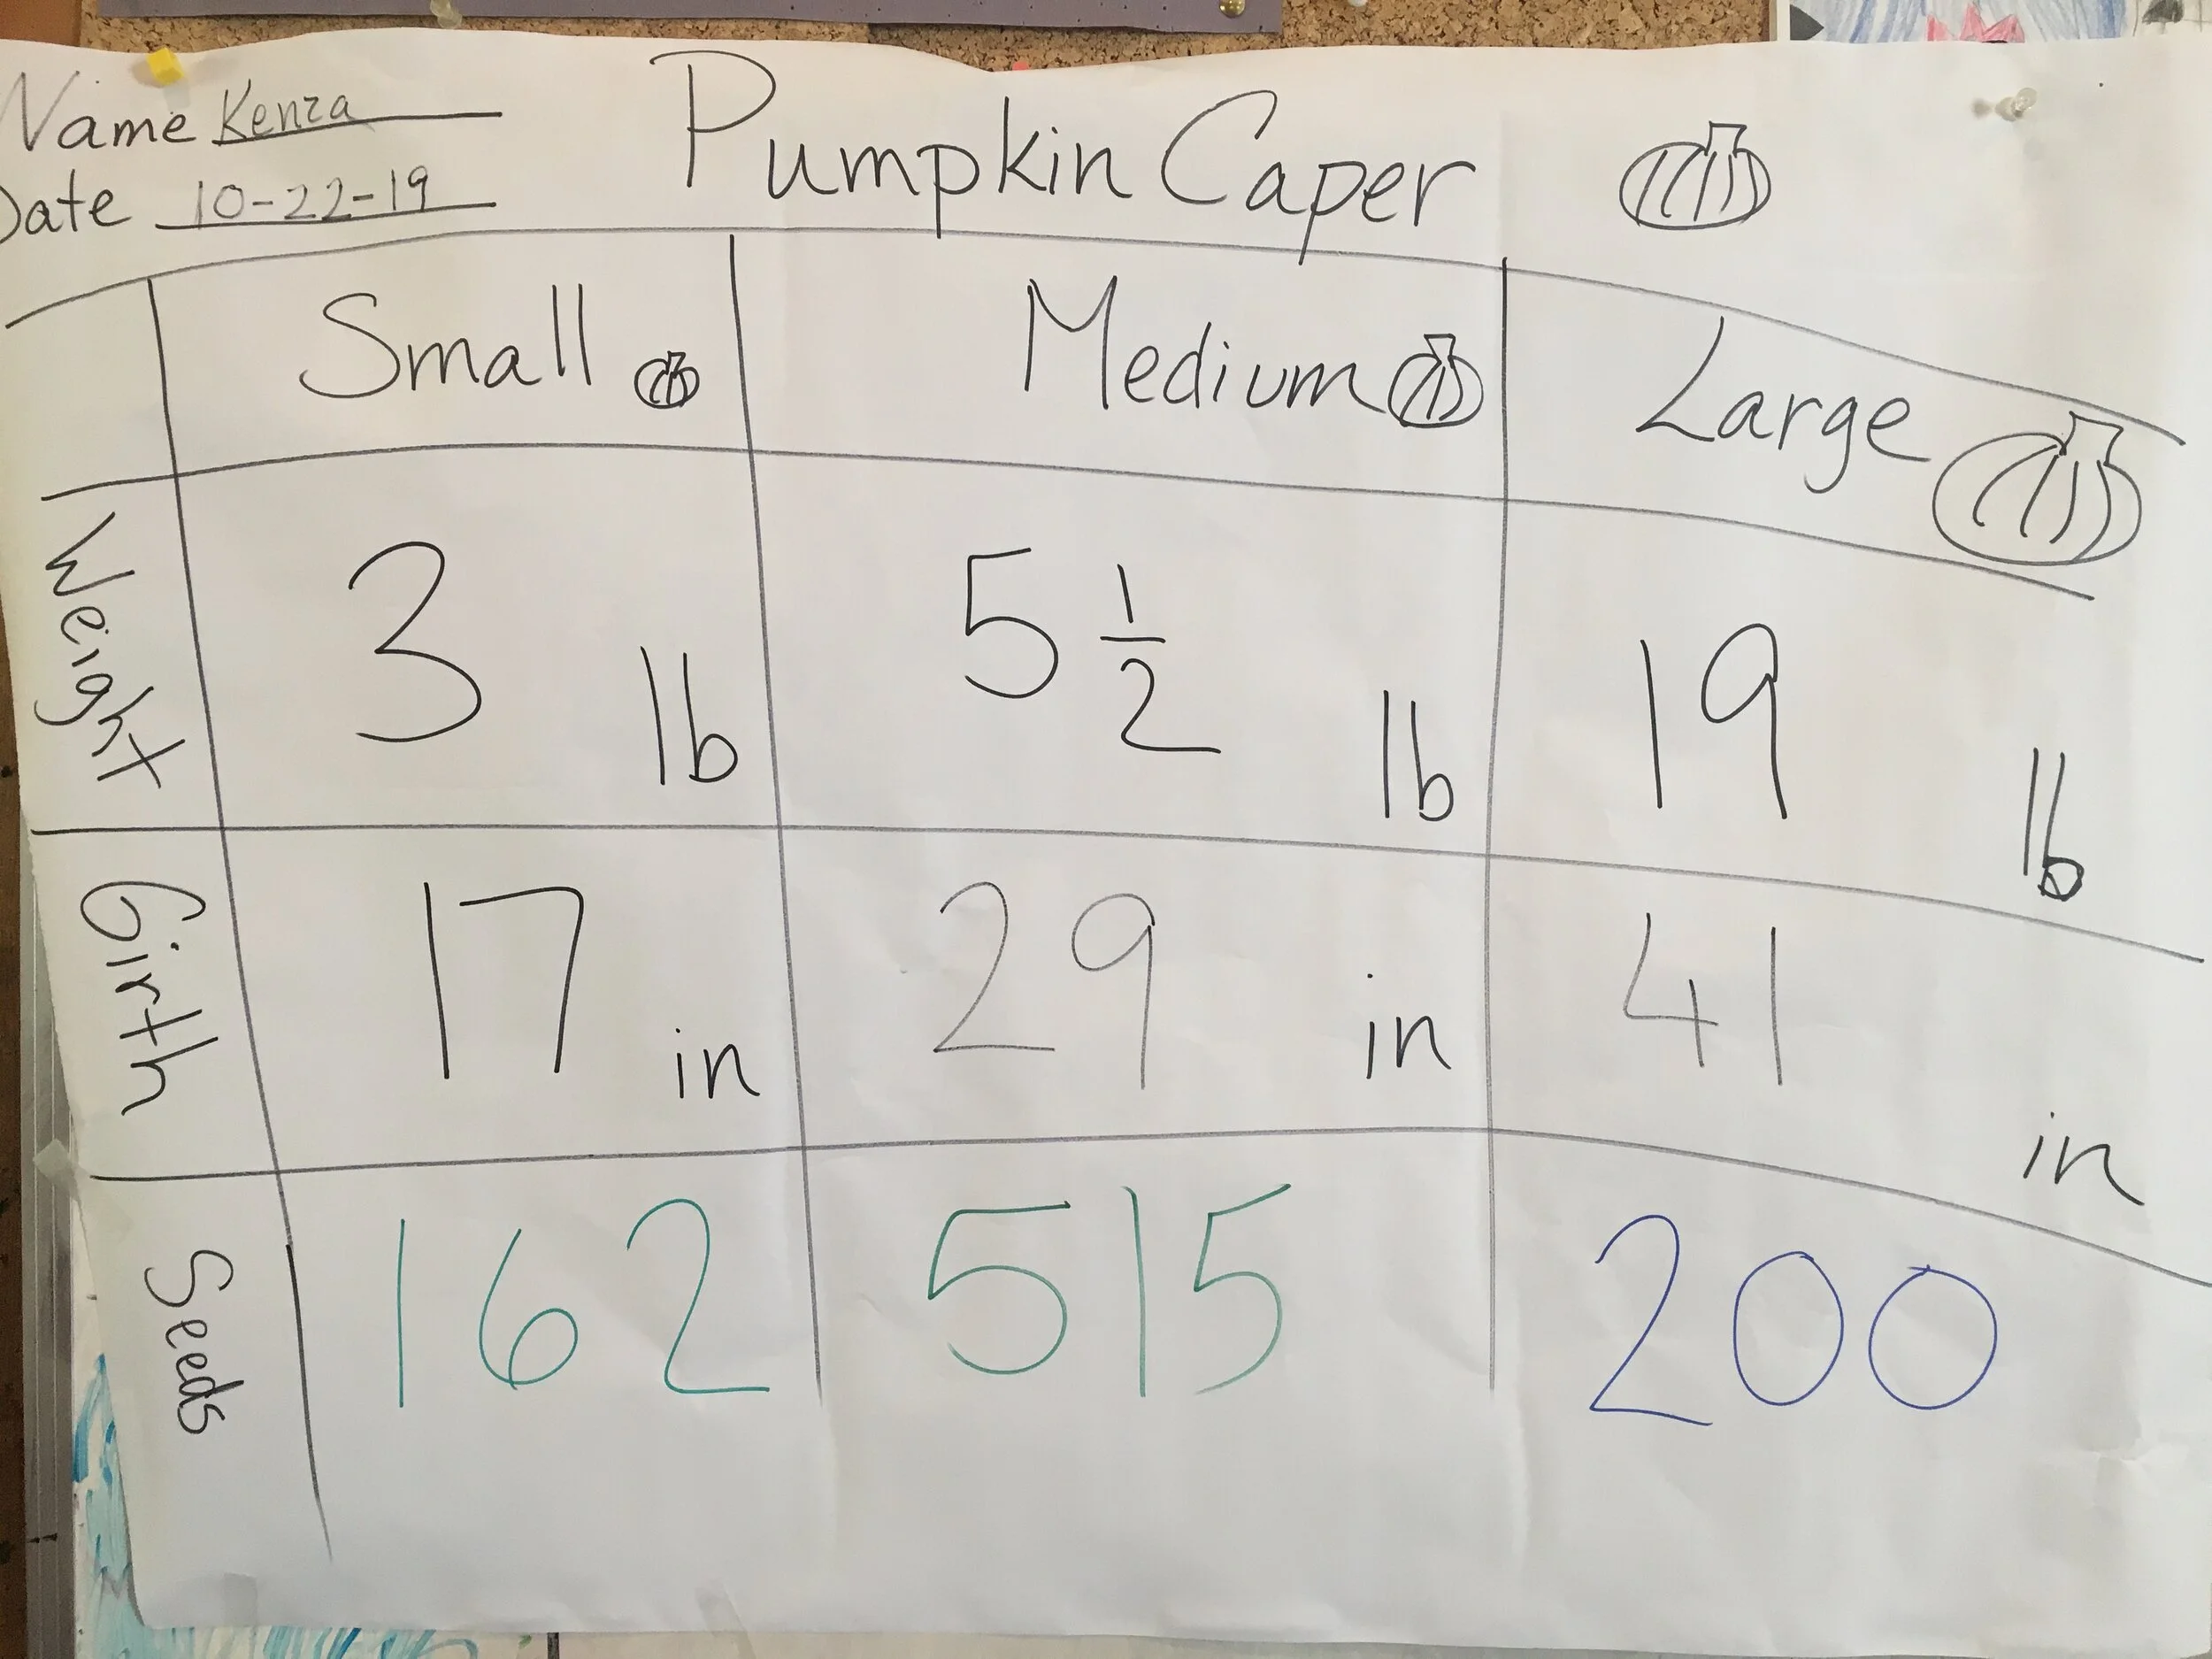 Name Kenza
Date 10-22-19
Pumpkin Caper
Small Medium Large
Weight 3 lb 5 1/2 lb 19 lb
Girth 17 in 29 in 41 in
Seeds 162 515 200